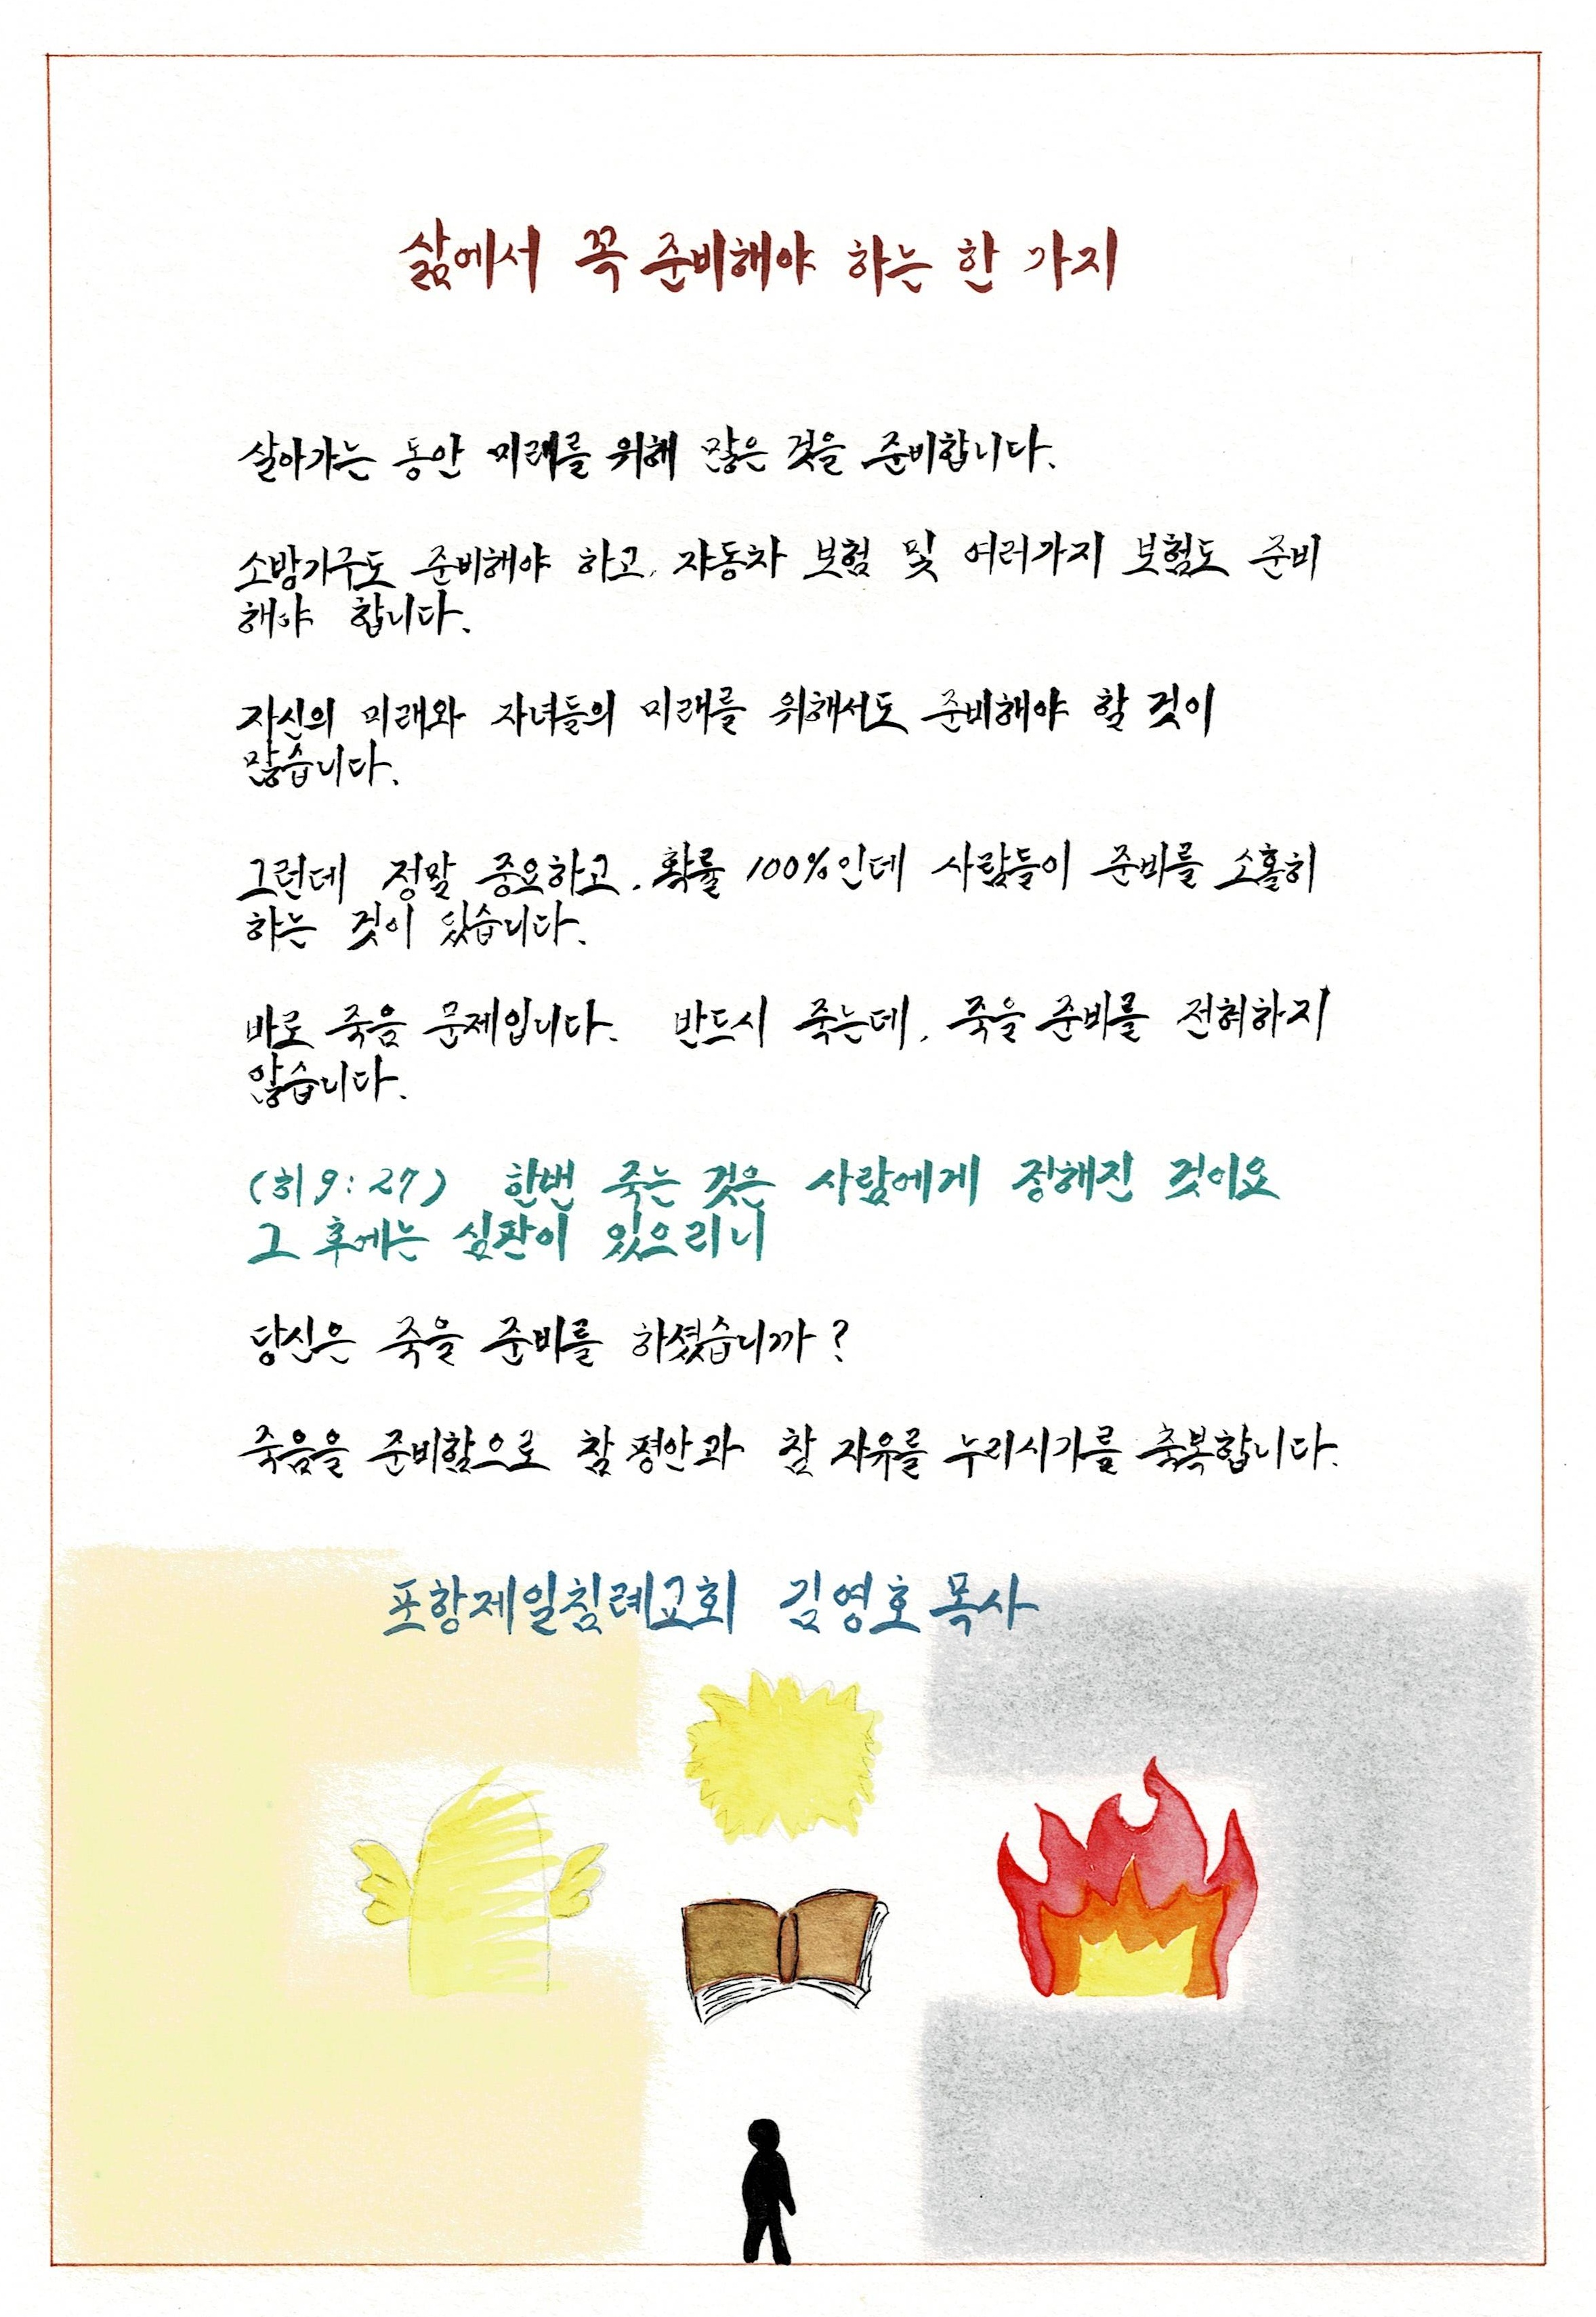 삶에서 꼭 준비해야 하는 한 가지
살아가는 동안 미래를 위해 많은 것을 준비합니다.
소방기구도 준비해야 하고, 자동차 보험 및 여러가지 보험도 준비
해야 합니다.
자신의 미래와 자녀들의 미래를 위해서도 준비해야 할 것이
많습니다.
그런데 정말 중요하고, 확률 100%인데 사람들이 준비를 소홀히
하는 것이 있습니다.
바로 죽음 문제입니다. 반드시 죽는데, 죽을 준비를 전혀하지
않습니다.
(히 9:27) 한번 죽는 것은 사람에게 정해진 것이요
그 후에는 심판이 있으리니
당신은 죽을 준비를 하셨습니까?
죽음을 준비함으로 참 평안과 참 자유를 누리시기를 축복합니다.
포항제일침례교회 김영호 목사